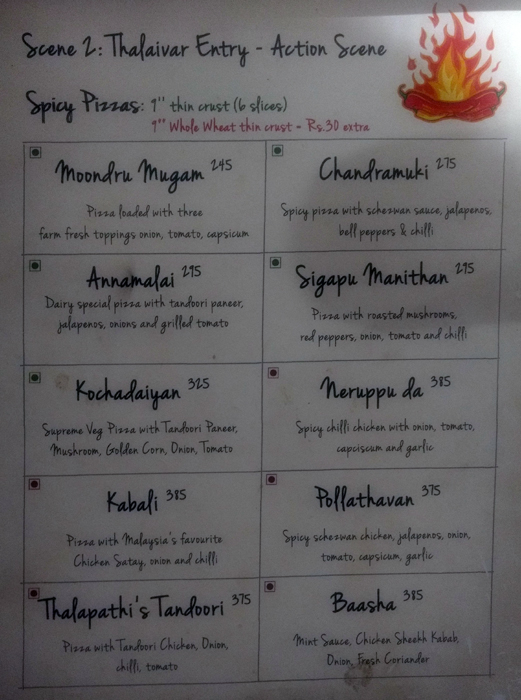 Scene 2: Thalaivar Entry - Action Scene
Spicy Pizzas: 9" thin crust (6 slices)
9" Whole Wheat thin crust - Rs.30 extra
Moondru Mugam 245
Pizza loaded with three
farm fresh toppings onion, tomato, capsicum
Chandramuki 275
Spicy pizza with schezwan sauce, jalapenos,
bell peppers & chilli
Annamalai 295
Dairy special pizza with tandoori paneer,
jalapenos, onions and grilled tomato
Sigapu Manithan 295
Pizza with roasted mushrooms,
red peppers, onion, tomato and chilli
Kochadaiyan 325
Supreme Veg Pizza with Tandoori Paneer,
Mushroom, Golden Corn, Onion, Tomato
Neruppu da 385
Spicy chilli chicken with onion, tomato,
capciscum and garlic
Kabali 385
Pizza with Malaysia's favourite
Chicken Satay, onion and chilli
Pollathavan 375
Spicy schezwan chicken, jalapenos, onion,
tomato, capsicum, garlic
Thalapathi's Tandoori 375
Pizza with Tandoori Chicken, Onion,
chilli, tomato
Baasha 385
Mint Sauce, Chicken Sheekh Kabab,
Onion, Fresh Coriander